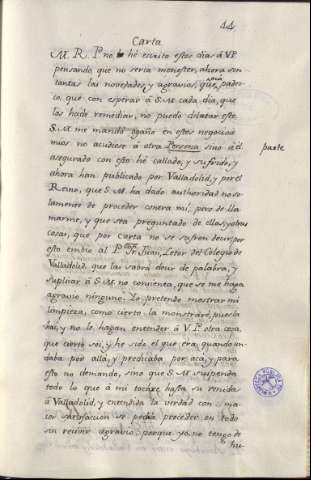 44
Carta
M. R. P. no he escrito estos dias á V.P.
pensando que no seria menester, ahora son
tantas las novedades, y agravios, que aqui padez-
co, que con esperar á S.M. cada dia, que
los ha de remediar, no puedo dilatar esto.
S.M. me mandó ogaño en estos negocios
mios no acudiese á otra Persona sino á él
parte
asegurado con esto hé callado, y sufrido, y
ahora han publicado por Valladolid, y por el
Reino, que S.M. ha dado authoridad no so-
lamente de proceder contra mi, pero de lla-
marme, y que sea preguntado de ellos, y otras
cosas, que por carta no se sufren decir, por
esto embio al P. Fr. Juan, Letor del Colegio de
Valladolid, que las sabrá decir de palabra, y
suplicar á S.M. no convienta, que se me haga
agravio ninguno. Yo pretendo mostrar mi
limpieza, como cierto la mostraré, pues la
hai, y no le hagan entender á V.P. otra cosa,
que cierto soi, y he sido el que era, quando an-
daba por allá, y predicaba por acá, y para
esto no demando, sino que S.M. suspenda
todo lo que á mi tocáre, hasta su venida
á Valladolid, y entendida la verdad con ma-
ior satisfaccion se podrá proceder en todo
sin recivir agravio, porque yo no tengo de
hu-